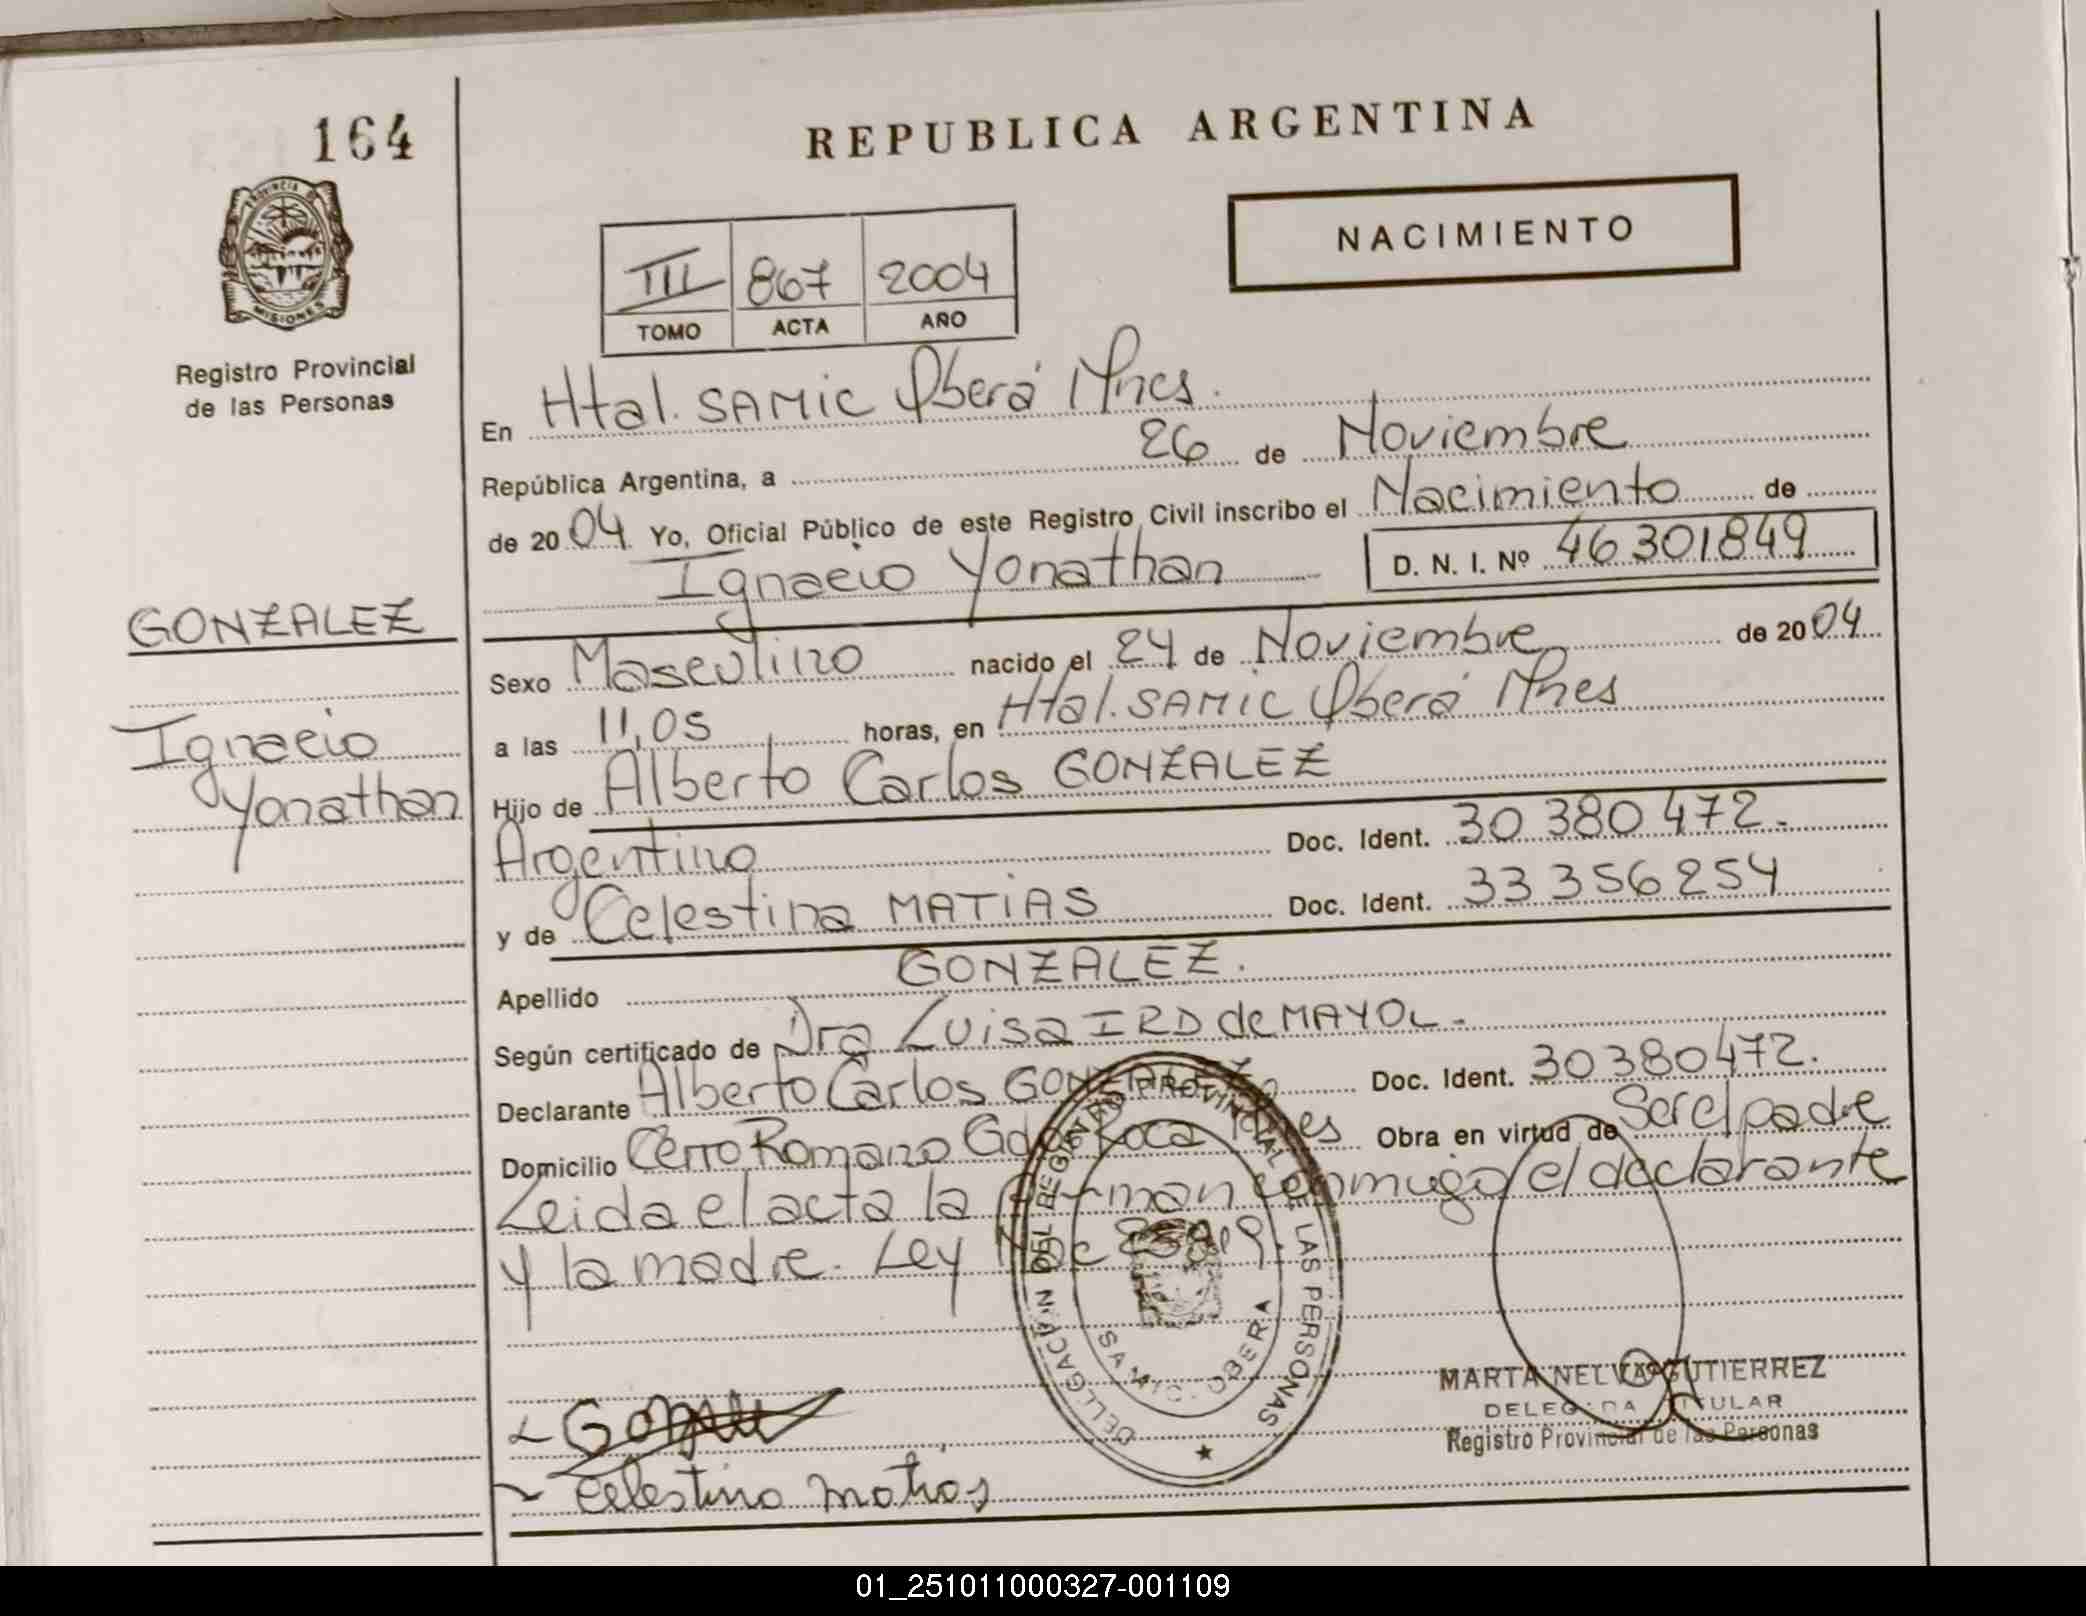 164
REPUBLICA ARGENTINA
PROVINCIA DE
MISIONES
Registro Provincial
de las Personas
NACIMIENTO
III 867 2004
TOMO ACTA AÑO
En Htal. SAMIC Oberá Mnes.
República Argentina, a 26 de Noviembre
de 2004 Yo, Oficial Público de este Registro Civil inscribo el Nacimiento de
Ignacio Yonathan D. N. I. Nº 46301849
GONZALEZ
Ignacio
Yonathan
Sexo Masculino nacido el 24 de Noviembre de 2004
a las 11,05 horas, en Htal. SAMIC Oberá Mnes
Hijo de Alberto Carlos GONZALEZ
Argentino Doc. Ident. 30380472.
y de Celestina MATIAS Doc. Ident. 33356254
Apellido GONZALEZ.
Según certificado de Dra Luisa IRD de MAYOL-
Declarante Alberto Carlos GONZALEZ Doc. Ident. 30380472.
Domicilio Cerro Romano Gdor Roca Mnes Obra en virtud de Ser el padre
Leida el acta la firman conmigo el declarante
y la madre. Ley
DELEGACION DEL REGISTRO PROVINCIAL DE LAS PERSONAS
SAMIC - OBERA
MARTA NELVA GUTIERREZ
DELEGADA TITULAR
Registro Provincial de las Personas
Celestina Matias
01_251011000327-001109